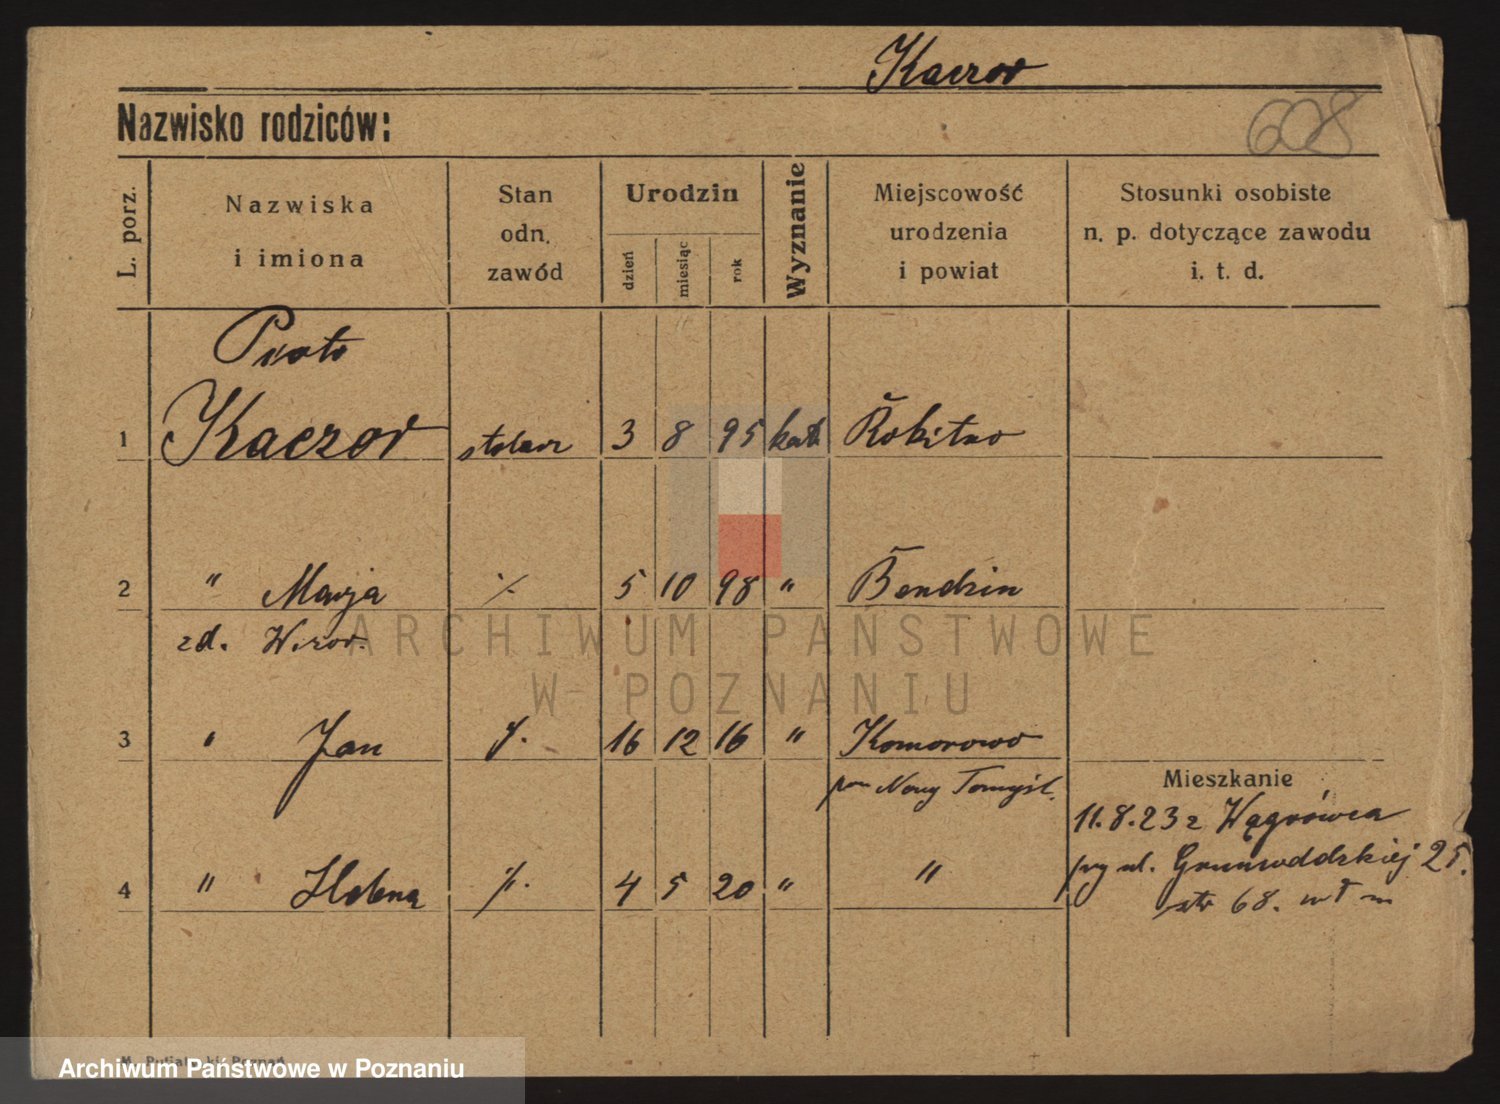 Kaczor
608
Nazwisko rodziców:
L. porz.
Nazwiska
i imiona
Stan
odn.
zawód
Urodzin
dzień
miesiąc
rok
Wyznanie
Miejscowość
urodzenia
i powiat
Stosunki osobiste
n. p. dotyczące zawodu
i. t. d.
Piotr
1 Kaczor stolarz 3 8 95 kath Rokitno
2 " Marja ·/. 5 10 98 " Bendzin
zd.
ARCHIWUM PAŃSTWOWE
W POZNANIU
3 " Jan ·/. 16 12 16 " Komorowo
pow Nowy Tomyśl.
Mieszkanie
11.8.23 z Wągrówca
4 " Helena ·/. 4 5 20 " "
przy ul. Grunwaldzkiej 25.
68.
M. Putiatycki Poznań
Archiwum Państwowe w Poznaniu